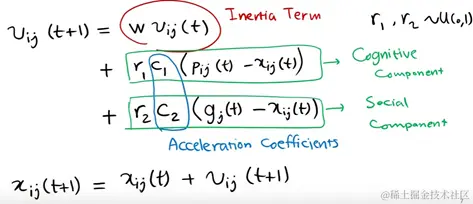 v_ij (t+1) = w v_ij (t) Inertia Term r_1, r_2 ~ U(0,1)
+ r_1 c_1 (p_ij (t) - x_ij (t)) → Cognitive Component
+ r_2 c_2 (g_j (t) - x_ij (t)) → Social Component
Acceleration Coefficients
x_ij (t+1) = x_ij (t) + v_ij (t+1)
@稀土掘金技术社区